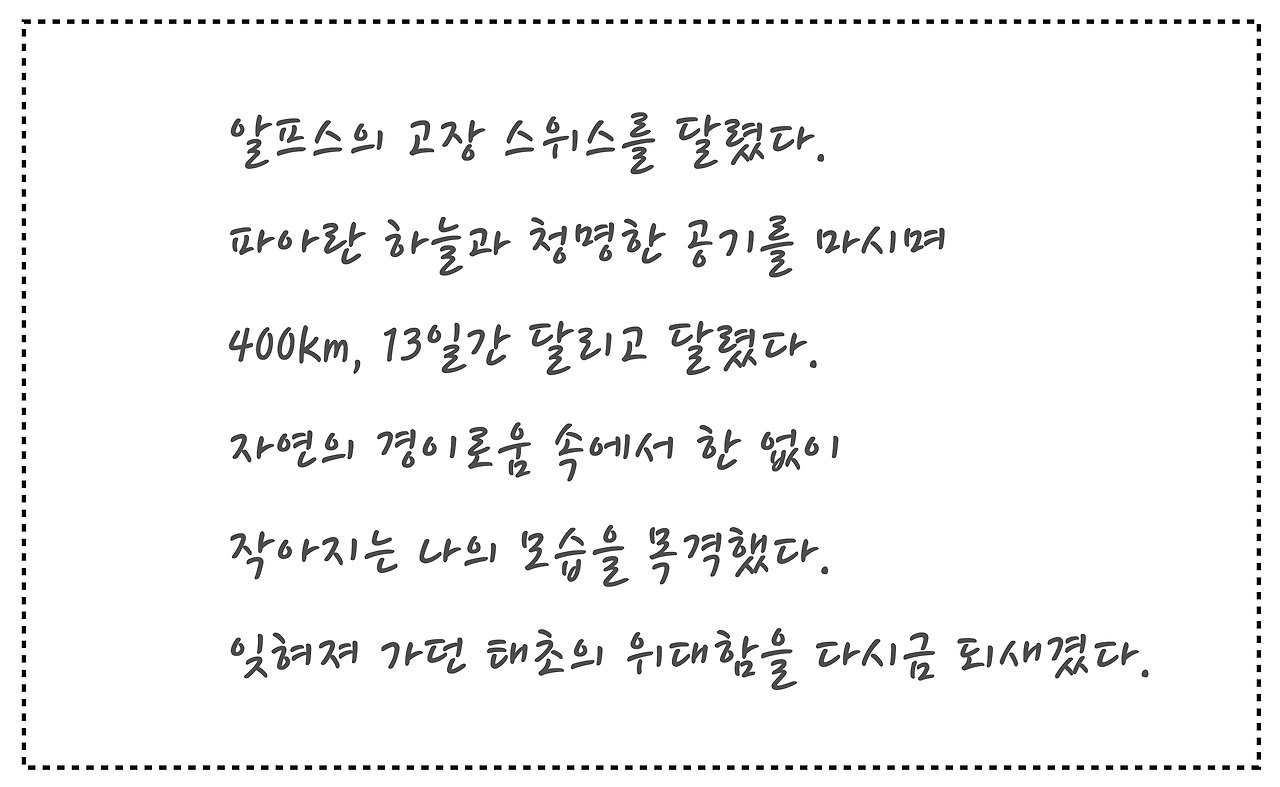 알프스의 고장 스위스를 달렸다.
파아란 하늘과 청명한 공기를 마시며
400km, 13일간 달리고 달렸다.
자연의 경이로움 속에서 한 없이
작아지는 나의 모습을 목격했다.
잊혀져 가던 태초의 위대함을 다시금 되새겼다.